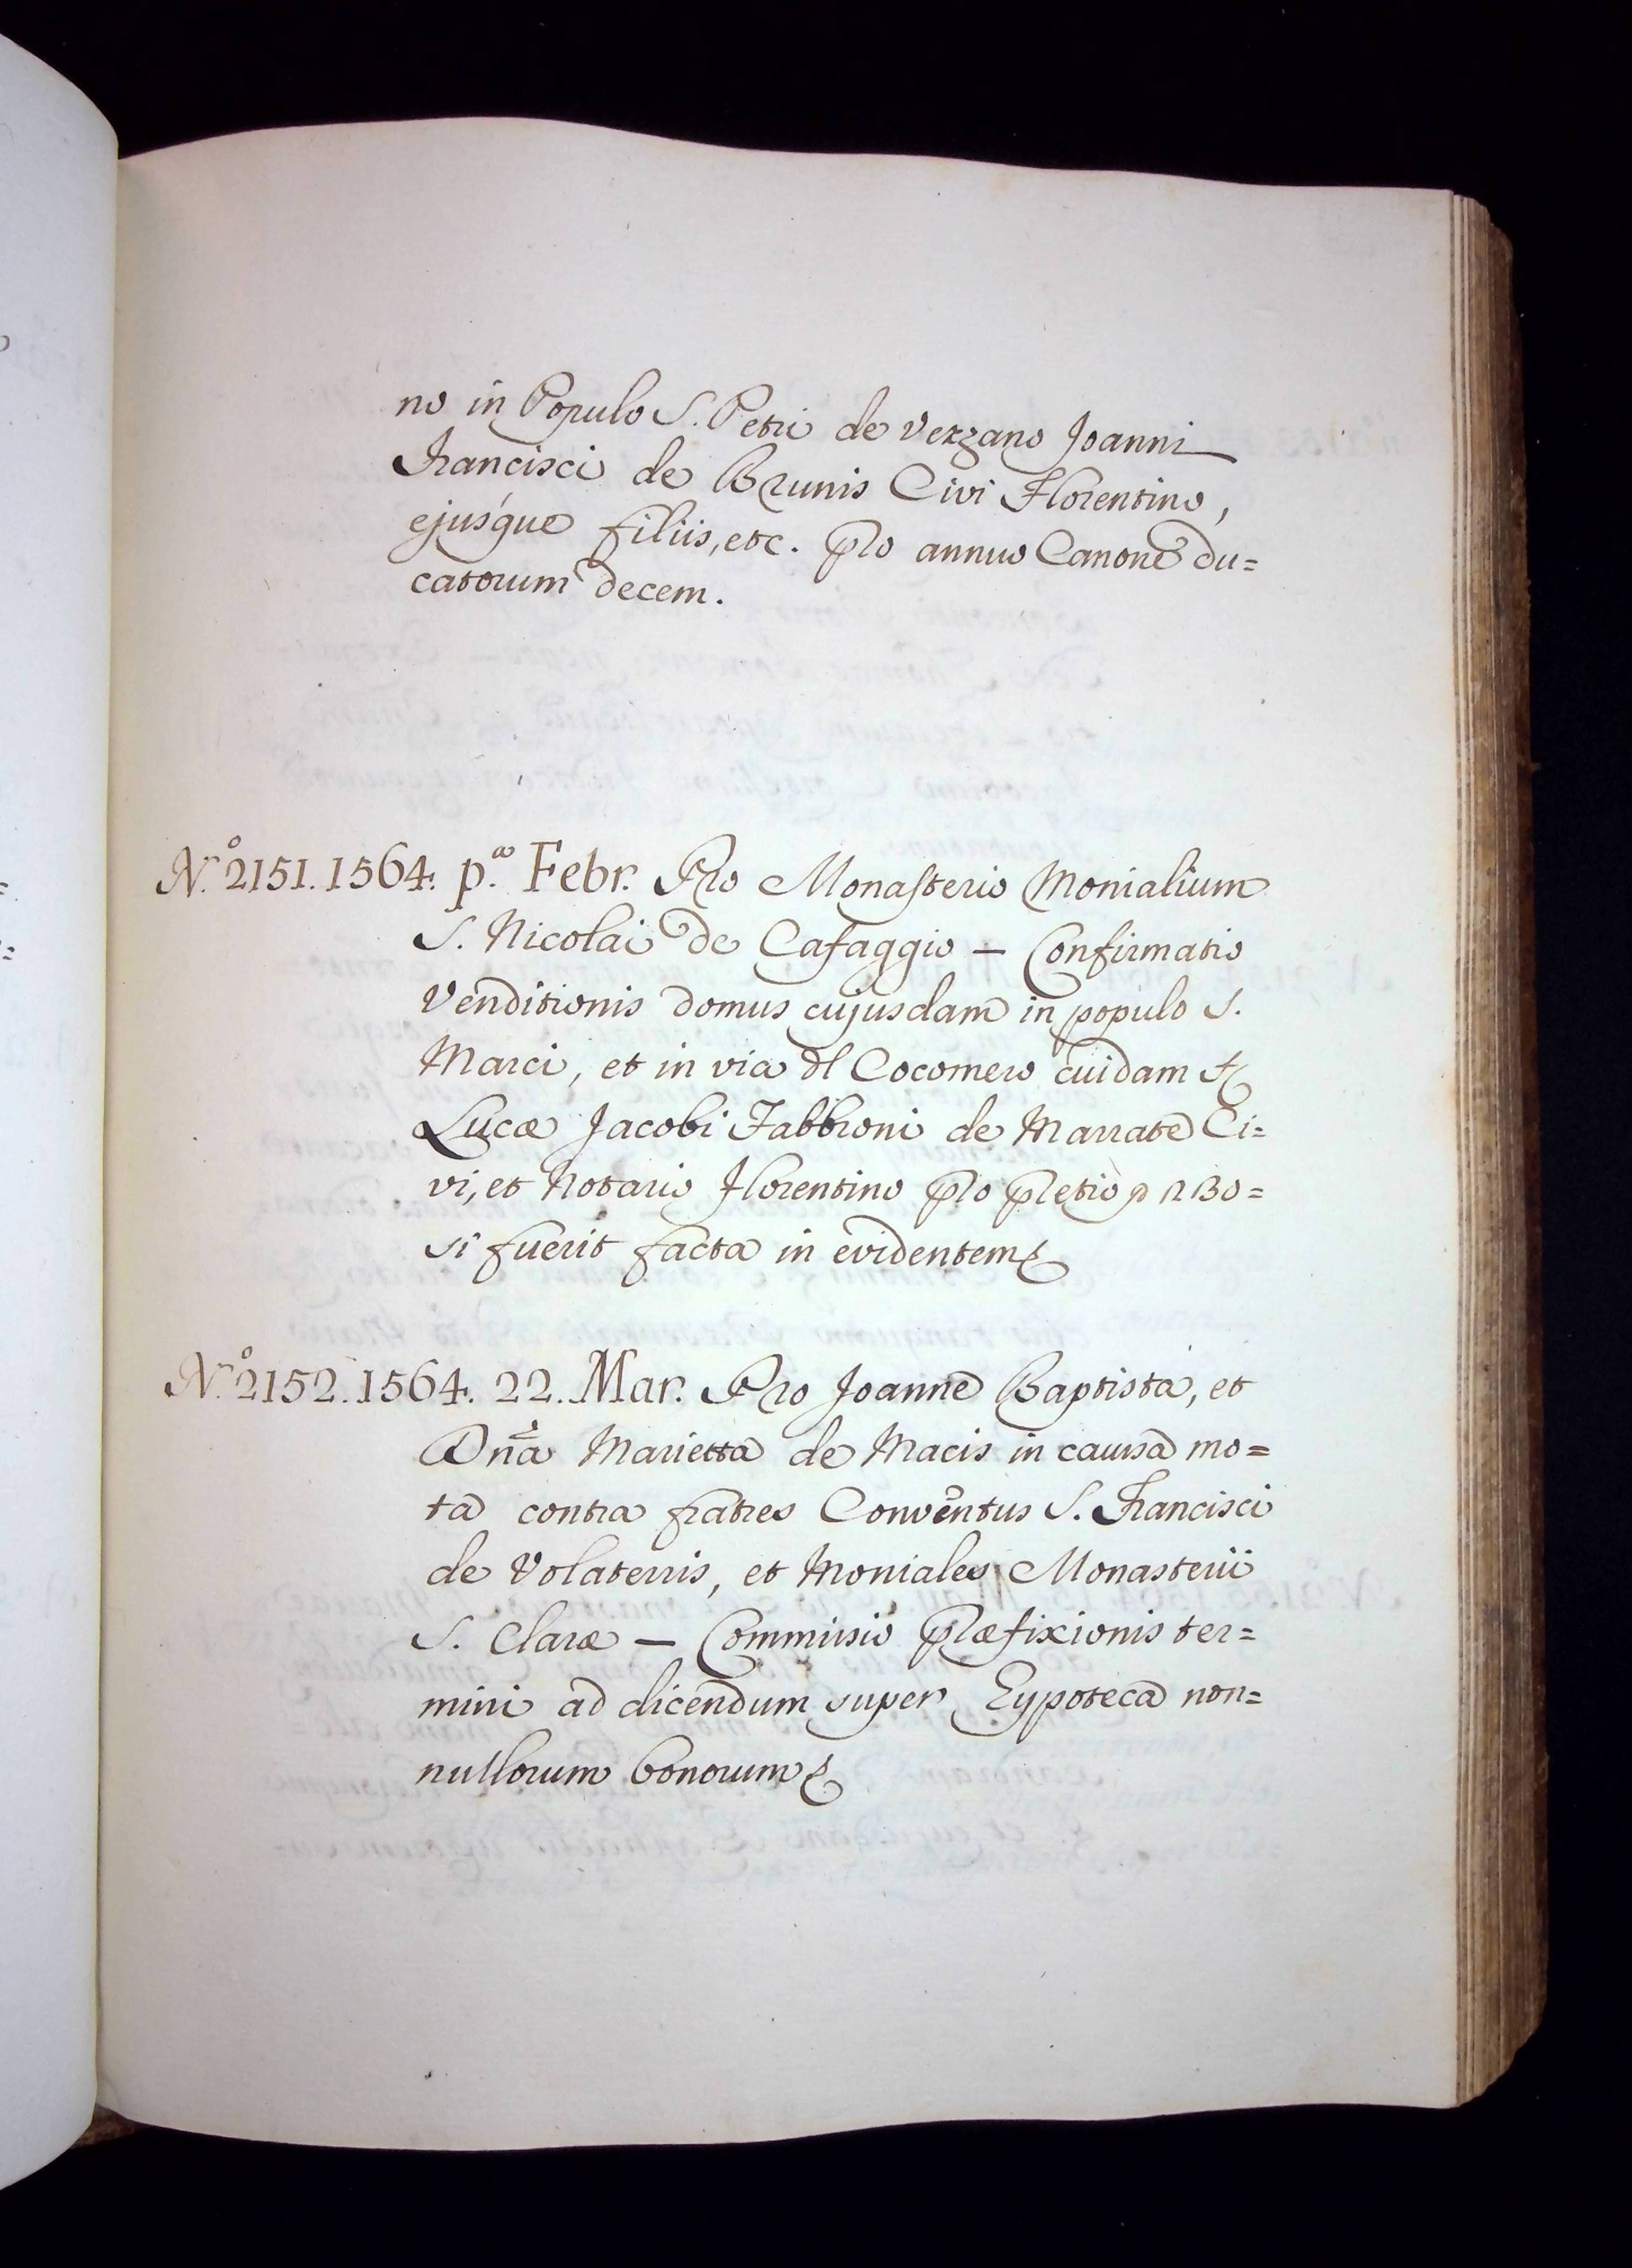 no in Populo S. Petri de Vezzano Joanni
Francisci de Brunis Civi Florentino,
ejusque filiis, etc. pro annuo Canone du=
catorum decem.
N.º 2151. 1564. p.ª Febr. Pro Monasterio Monialium
S. Nicolai de Cafaggio — Confirmatio
Venditionis domus cujusdam in populo S.
Marci, et in via dl Cocomero cuidam
Lucæ Jacobi Fabbroni de Marrate Ci=
vi, et Notario Florentino pro pretio
si fuerit facta in evidentem
N.º 2152. 1564. 22. Mar. Pro Joanne Baptista, et
Dnã Marietta de Macis in causa mo=
ta contra fratres Conventus S. Francisci
de Volaterris, et Moniales Monasterii
S. Claræ — Commissio præfixionis ter=
mini ad dicendum super Eypoteca non=
nullorum bonorum